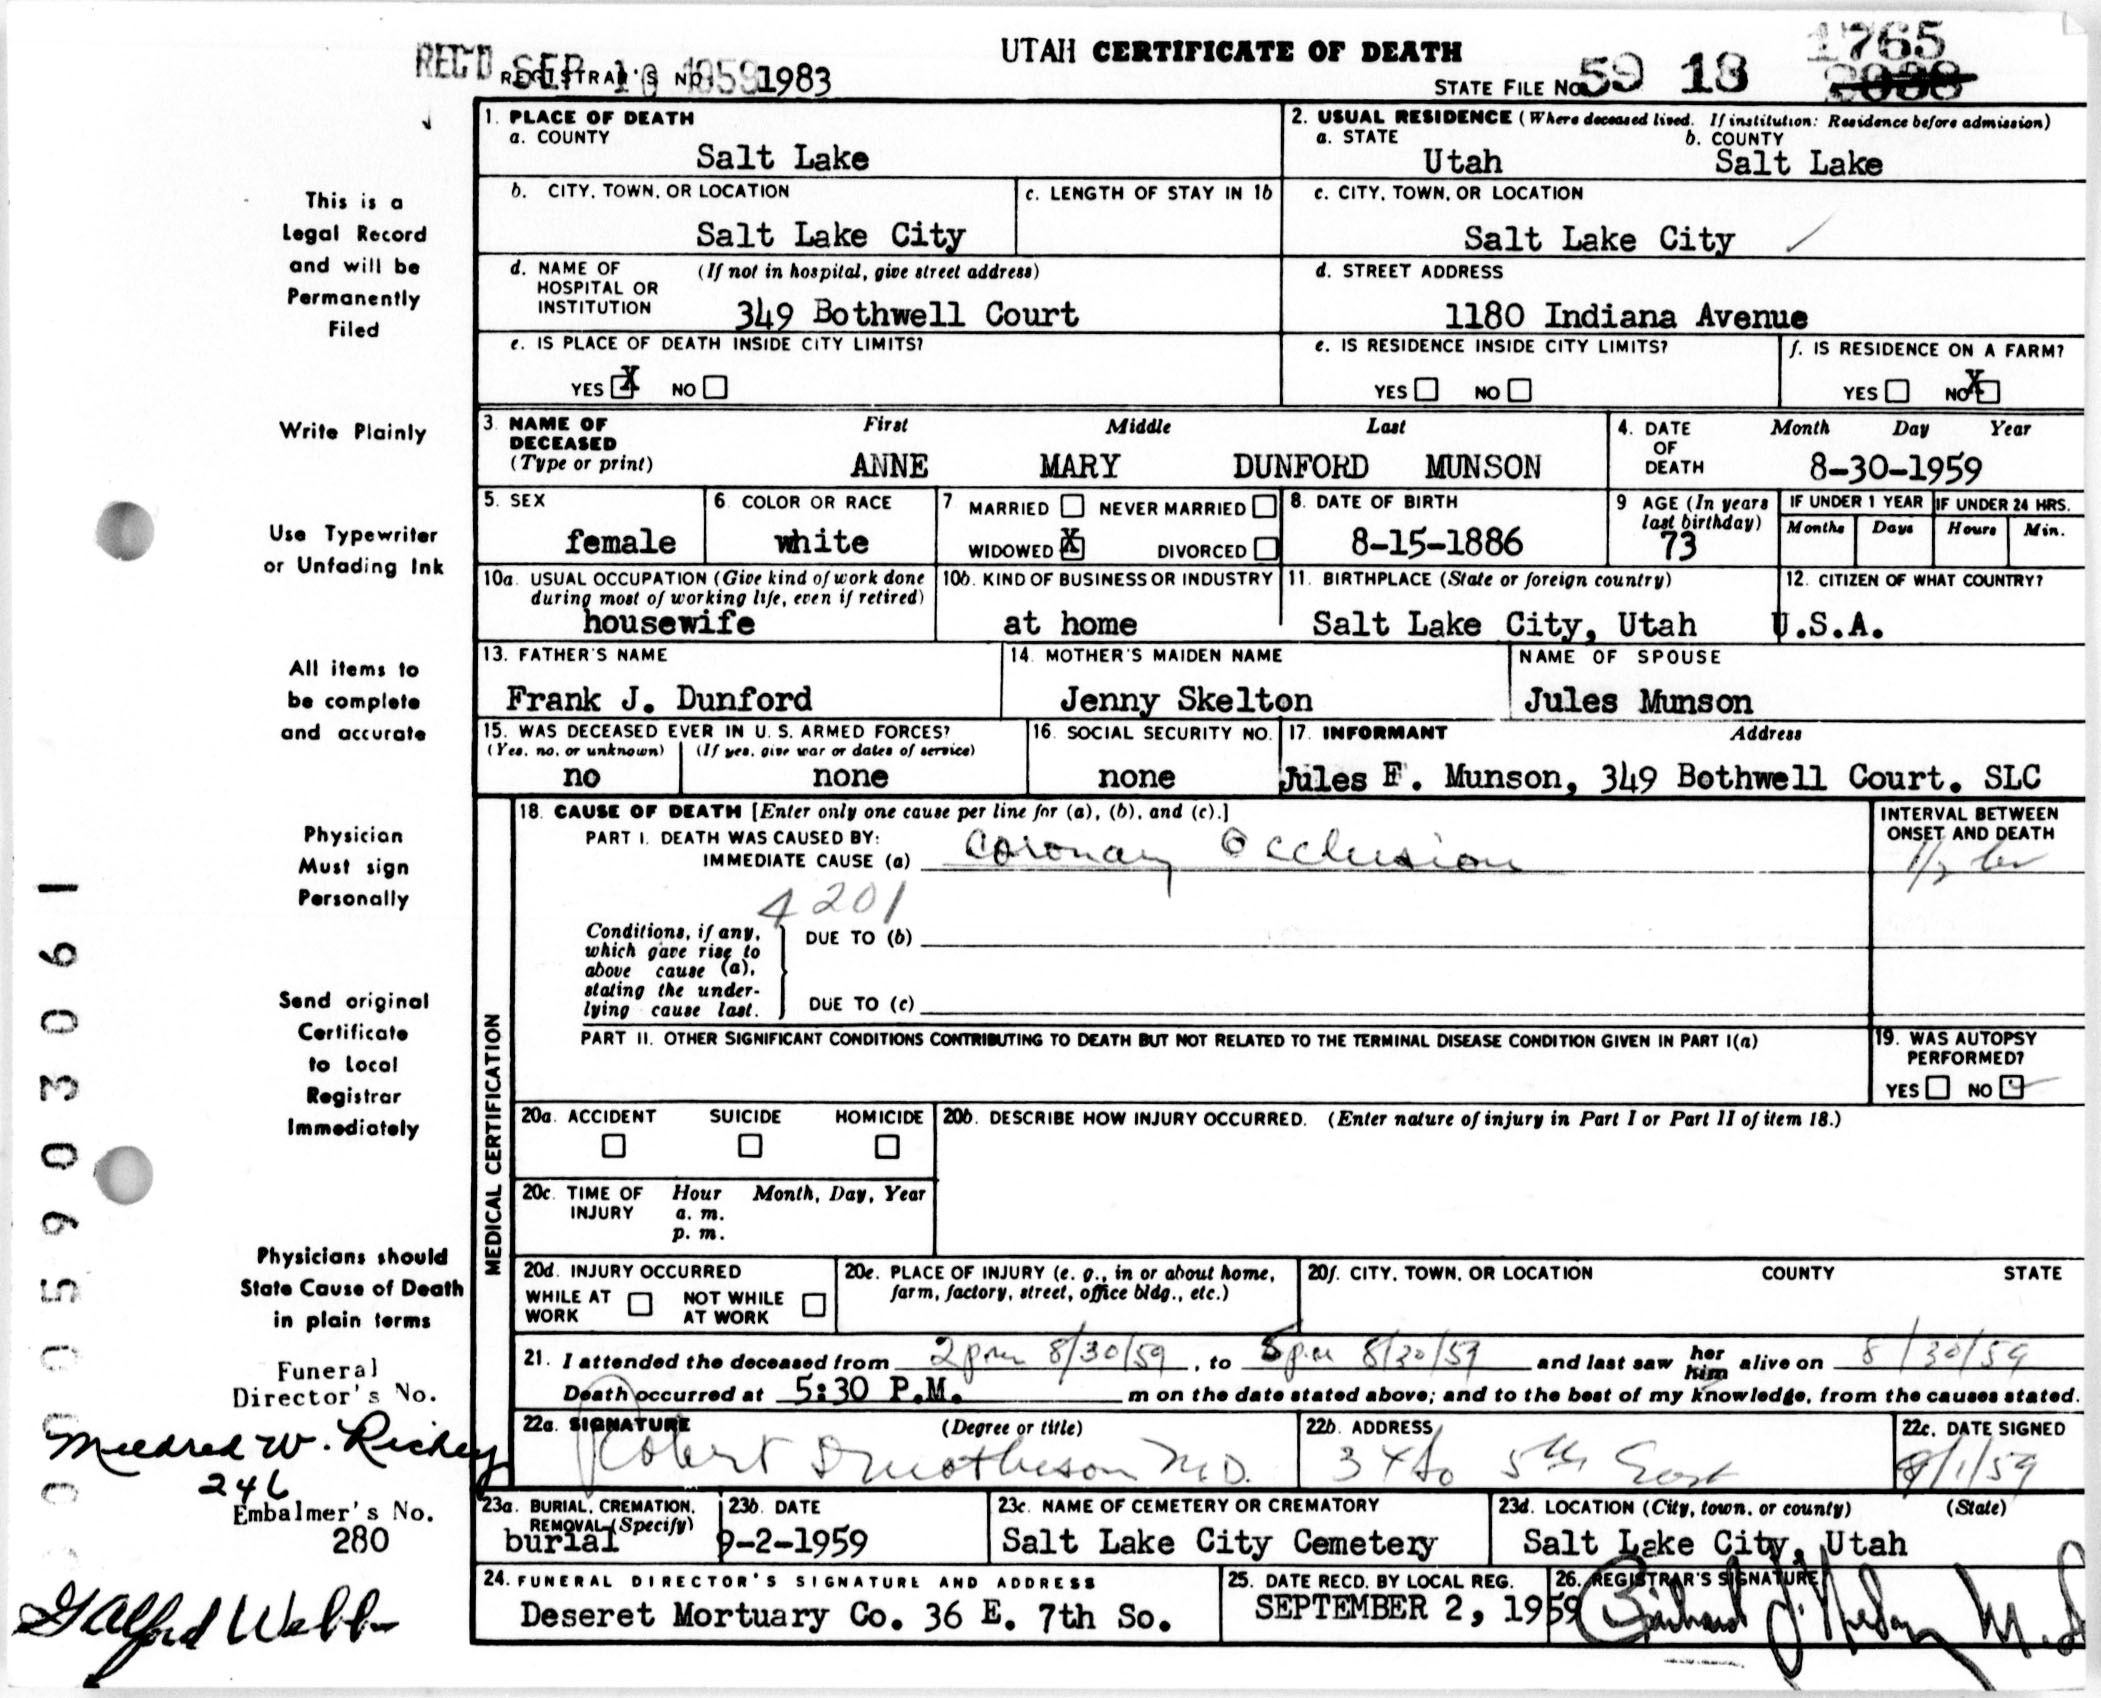 UTAH CERTIFICATE OF DEATH
1765
REC'D SEP 10 1959
REGISTRAR'S NO. 1983
STATE FILE NO. 59 18 2038
1. PLACE OF DEATH
a. COUNTY
Salt Lake
2. USUAL RESIDENCE (Where deceased lived. If institution: Residence before admission)
a. STATE
Utah
b. COUNTY
Salt Lake
b. CITY, TOWN, OR LOCATION
Salt Lake City
c. LENGTH OF STAY IN 1b
c. CITY, TOWN, OR LOCATION
Salt Lake City
d. NAME OF HOSPITAL OR INSTITUTION
(If not in hospital, give street address)
349 Bothwell Court
d. STREET ADDRESS
1180 Indiana Avenue
e. IS PLACE OF DEATH INSIDE CITY LIMITS?
YES X NO
e. IS RESIDENCE INSIDE CITY LIMITS?
YES NO
f. IS RESIDENCE ON A FARM?
YES NO X
3. NAME OF DECEASED
(Type or print)
First Middle Last
ANNE MARY DUNFORD MUNSON
4. DATE OF DEATH
Month Day Year
8-30-1959
5. SEX
female
6. COLOR OR RACE
white
7 MARRIED NEVER MARRIED
WIDOWED X DIVORCED
8. DATE OF BIRTH
8-15-1886
9 AGE (In years last birthday)
73
IF UNDER 1 YEAR
Months Days
IF UNDER 24 HRS.
Hours Min.
10a. USUAL OCCUPATION (Give kind of work done during most of working life, even if retired)
housewife
10b. KIND OF BUSINESS OR INDUSTRY
at home
11. BIRTHPLACE (State or foreign country)
Salt Lake City, Utah
12. CITIZEN OF WHAT COUNTRY?
U.S.A.
13. FATHER'S NAME
Frank J. Dunford
14. MOTHER'S MAIDEN NAME
Jenny Skelton
NAME OF SPOUSE
Jules Munson
15. WAS DECEASED EVER IN U. S. ARMED FORCES?
(Yes, no, or unknown) (If yes, give war or dates of service)
no none
16. SOCIAL SECURITY NO.
none
17. INFORMANT Address
Jules F. Munson, 349 Bothwell Court. SLC
MEDICAL CERTIFICATION
18. CAUSE OF DEATH [Enter only one cause per line for (a), (b), and (c).]
PART I. DEATH WAS CAUSED BY:
IMMEDIATE CAUSE (a) Coronary Occlusion
INTERVAL BETWEEN ONSET AND DEATH
4201
Conditions, if any, which gave rise to above cause (a), stating the underlying cause last.
DUE TO (b)
DUE TO (c)
PART II. OTHER SIGNIFICANT CONDITIONS CONTRIBUTING TO DEATH BUT NOT RELATED TO THE TERMINAL DISEASE CONDITION GIVEN IN PART I(a)
19. WAS AUTOPSY PERFORMED?
YES NO
20a. ACCIDENT SUICIDE HOMICIDE
20b. DESCRIBE HOW INJURY OCCURRED. (Enter nature of injury in Part I or Part II of item 18.)
20c. TIME OF INJURY
Hour Month, Day, Year
a. m.
p. m.
20d. INJURY OCCURRED
WHILE AT WORK NOT WHILE AT WORK
20e. PLACE OF INJURY (e. g., in or about home, farm, factory, street, office bldg., etc.)
20f. CITY, TOWN, OR LOCATION COUNTY STATE
21. I attended the deceased from 2 pm 8/30/59, to 5 p.m 8/30/59 and last saw her him alive on 8/30/59
Death occurred at 5:30 P.M. m on the date stated above; and to the best of my knowledge, from the causes stated.
22a. SIGNATURE (Degree or title)
Robert D Matheson M.D.
22b. ADDRESS
5th East
22c. DATE SIGNED
9/1/59
23a. BURIAL, CREMATION, REMOVAL (Specify)
burial
23b. DATE
9-2-1959
23c. NAME OF CEMETERY OR CREMATORY
Salt Lake City Cemetery
23d. LOCATION (City, town, or county) (State)
Salt Lake City, Utah
24. FUNERAL DIRECTOR'S SIGNATURE AND ADDRESS
Deseret Mortuary Co. 36 E. 7th So.
25. DATE RECD. BY LOCAL REG.
SEPTEMBER 2, 1959
26. REGISTRAR'S SIGNATURE
This is a
Legal Record
and will be
Permanently
Filed
Write Plainly
Use Typewriter
or Unfading Ink
All items to
be complete
and accurate
Physician
Must sign
Personally
Send original
Certificate
to Local
Registrar
Immediately
Physicians should
State Cause of Death
in plain terms
Funeral
Director's No.
Mildred W. Richey
246
Embalmer's No.
280
Galford Webb
0005903061